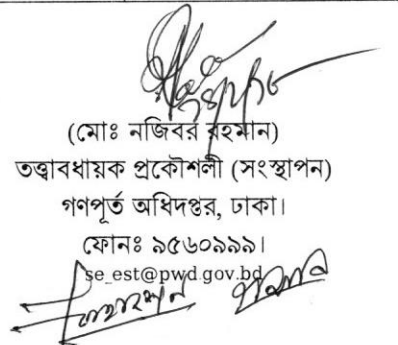 (মোঃ নজিবর রহমান)
তত্ত্বাবধায়ক প্রকৌশলী (সংস্থাপন)
গণপূর্ত অধিদপ্তর, ঢাকা।
ফোনঃ ৯৫৬০৯৯৯।
se_est@pwd.gov.bd